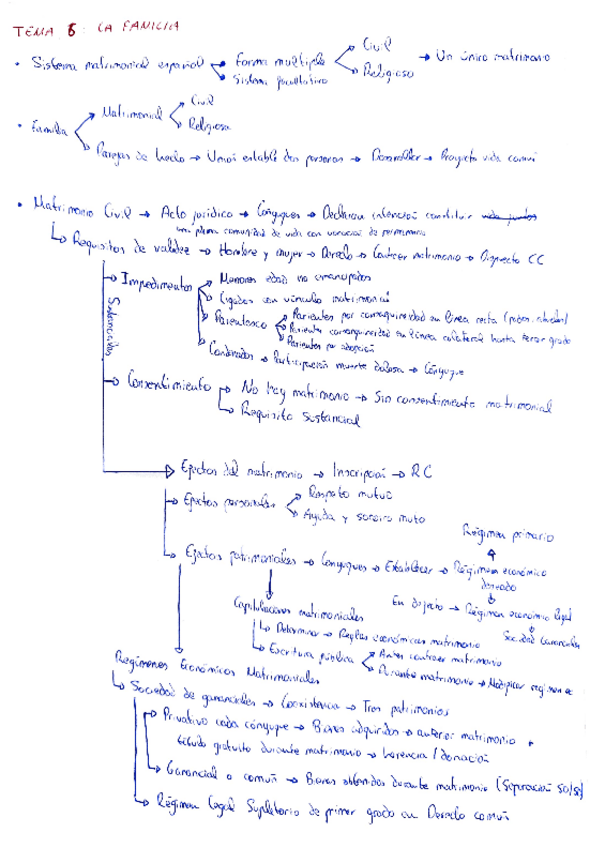 TEMA 6: LA FAMILIA
• Sistema matrimonial español → Forma multiple → Civil → Un único matrimonio
→ Religioso
→ Sistema facultativo
• Familia → Matrimonial → Civil
→ Religiosa
→ Parejas de hecho → Unión estable dos personas → Desarrollar → Proyecto vida común
• Matrimonio Civil → Acto jurídico → Cónyuges → Declaran intención constituir
una plena comunidad de vida con vocación de permanencia
→ Requisitos de validez → Hombre y mujer → Derecho → Contraer matrimonio → Dispuesto CC
Sustanciales
→ Impedimentos → Menores edad no emancipados
→ Ligados con vínculo matrimonial
→ Parentesco → Parientes por consanguinidad en línea recta
→ Parientes consanguinidad en línea colateral hasta tercer grado
→ Parientes por adopción
→ Condenados → Participación muerte dolosa → Cónyuge
→ Consentimiento → No hay matrimonio → Sin consentimiento matrimonial
→ Requisito sustancial
→ Efectos del matrimonio → Inscripción → RC
→ Efectos personales → Respeto mutuo
→ Ayuda y socorro mutuo
Régimen primario
→ Efectos patrimoniales → Cónyuges → Establecer → Régimen económico
deseado
En defecto → Régimen económico legal
Sociedad Gananciales
Capitulaciones matrimoniales
→ Determinar → Reglas económicas matrimonio
→ Escritura pública → Antes contraer matrimonio
→ Durante matrimonio → Modificar régimen ec
Regímenes Económicos Matrimoniales
→ Sociedad de gananciales → Coexistencia → Tres patrimonios
→ Privativo cada cónyuge → Bienes adquiridos → anterior matrimonio +
título gratuito durante matrimonio → herencia / donación
→ Ganancial o común → Bienes obtenidos durante matrimonio (Separación 50/50)
→ Régimen legal supletorio de primer grado en Derecho común